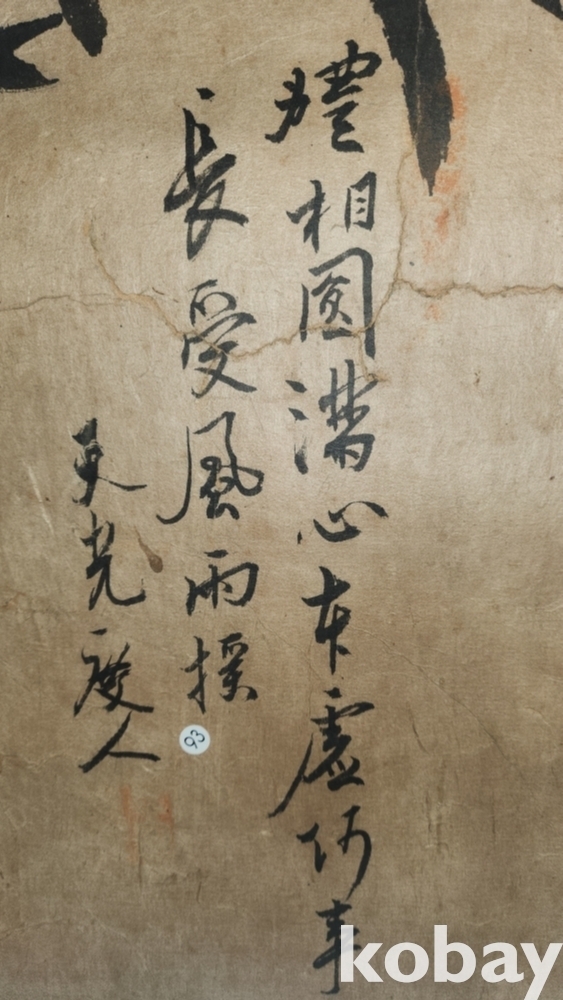 體相圓滿心本虛何事
長受風雨撲
光 人
93
kobay